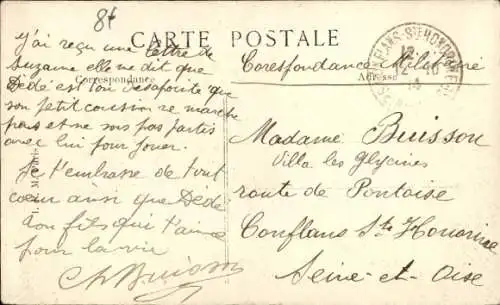 8f
CARTE POSTALE
Correspondance
Adresse
j'ai reçu une lettre de
Suzanne elle me dit que
Dédé est tou désapointé que
son petit coussion ne marche
pas et ne sois pas partis
avec lui pour jouer.
Je t'embrasse de tout
coeur ainsi que Dédé
ton fils qui t'aime
pour la vie
Ch Buisson
Corespondance Militaire
CONFLANS-STE HONORINE
12-10
14
Madame Buisson
Villa les Glycines
route de Pontoise
Conflans Ste Honorine
Seine-et-Oise